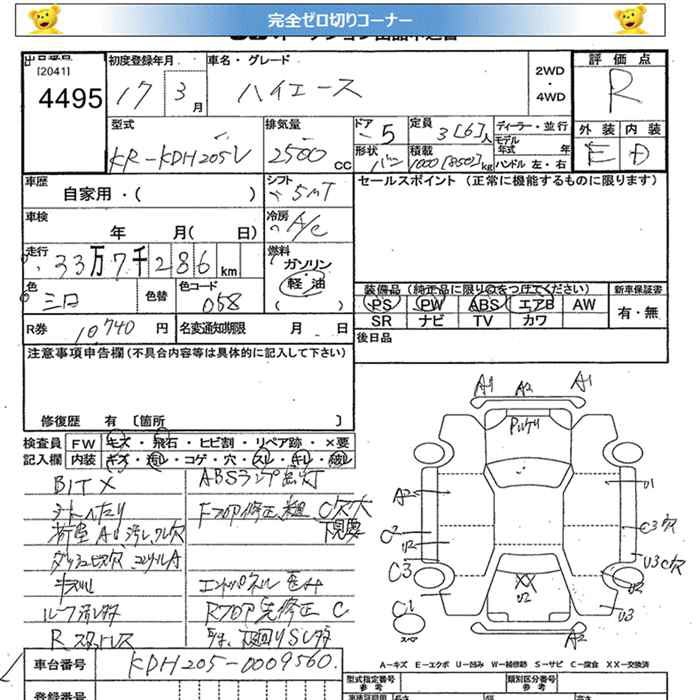 完全ゼロ切りコーナー
[2041]
4495
初度登録年月
17 3月
車名・グレード
ハイエース
2WD
・
4WD
評価点
R
外装 内装
E D
型式
KR-KDH205V
排気量
2500 CC
ドア
5
形状
バン
定員
3[6]人
積載
1000[850]kg
ディーラー・並行
モデル年式 年
ハンドル 左・右
車歴
自家用・( )
シフト
5MT
セールスポイント (正常に機能するものに限ります)
車検
年 月( 日)
冷房
A/C
走行
33万7千286km
燃料
ガソリン
軽油
( )
色
シロ
色替
色コード
058
装備品(純正品に限り○をつけてください)
PS PW ABS エアB AW
SR ナビ TV カワ
新車保証書
有・無
R券 10,740円
名変通知期限 月 日
後日品
注意事項申告欄(不具合内容等は具体的に記入して下さい)
修復歴 有 〔箇所 〕
検査員記入欄
FW キズ・飛石・ヒビ割・リペア跡・×要
内装 キズ・汚レ・コゲ・穴・スレ・キレ・破レ
BIT X
ABSランプ点灯
シートヘタリ
Rフロア先修正 C
R スタットレス
車台番号 KDH205-0009560
登録番号
A1 A2 A1
A2
U1
C3穴
U3C穴
C3
U2
U3
C1
スペア
XX
U2
A2
A-キズ E-エクボ U-凹み W-補修跡 S-サビ C-腐食 XX-交換済
型式指定番号
参考
類別区分番号
参考